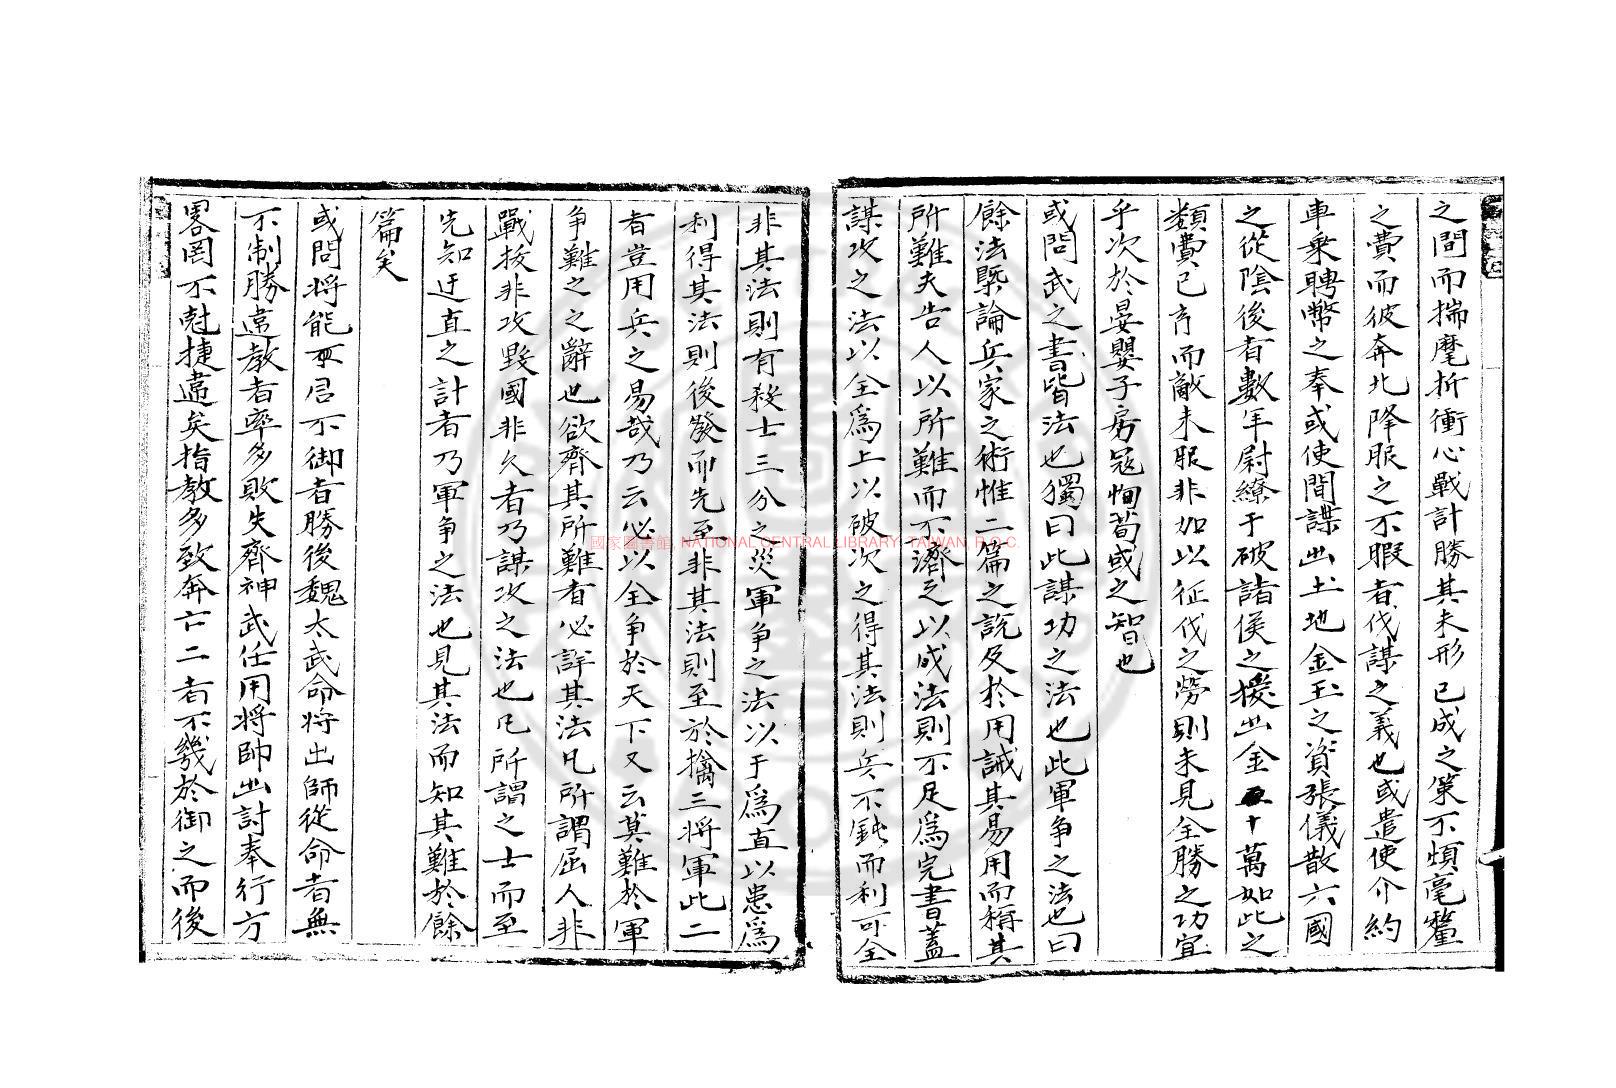 之間而揣麾折衝心戰計勝其未形已成之策不煩毫釐
之費而彼奔北降服之不暇者伐謀之義也或遣使介約
車乘聘幣之奉或使間諜出土地金玉之資張儀散六國
之從陰後者數年尉繚于破諸侯之援出金十萬如此之
類費已方而敵未服非加以征伐之勞則未見全勝之功宜
乎次於晏嬰子房冦恂荀彧之智也
或問武之書皆法也獨曰此謀功之法也此軍争之法也曰
餘法槩論兵家之術惟二篇之說及於用誡其易用而稱其
所難夫告人以所難而不濟之以成法則不足為完書蓋
謀攻之法以全為上以破次之得其法則兵不鈍而利可全
非其法則有殺士三分之災軍争之法以于為直以患為
利得其法則後發而先至非其法則至於擒三将軍此二
者豈用兵之易哉乃云必以全争於天下又云莫難於軍
争難之之辭也欲齊其所難者必詳其法凡所謂屈人非
戰拔非攻毀國非久者乃謀攻之法也凡所謂之士而至
先知迂直之計者乃軍争之法也見其法而知其難於餘
篇矣
或問将能而君不御者勝後魏太武命将出師從命者無
不制勝違教者率多敗失齊神武任用将帥出討奉行方
畧罔不尅捷違矣指教多致奔亡二者不幾於御之而後
國家圖書館, NATIONAL CENTRAL LIBRARY, TAIWAN, R.O.C.